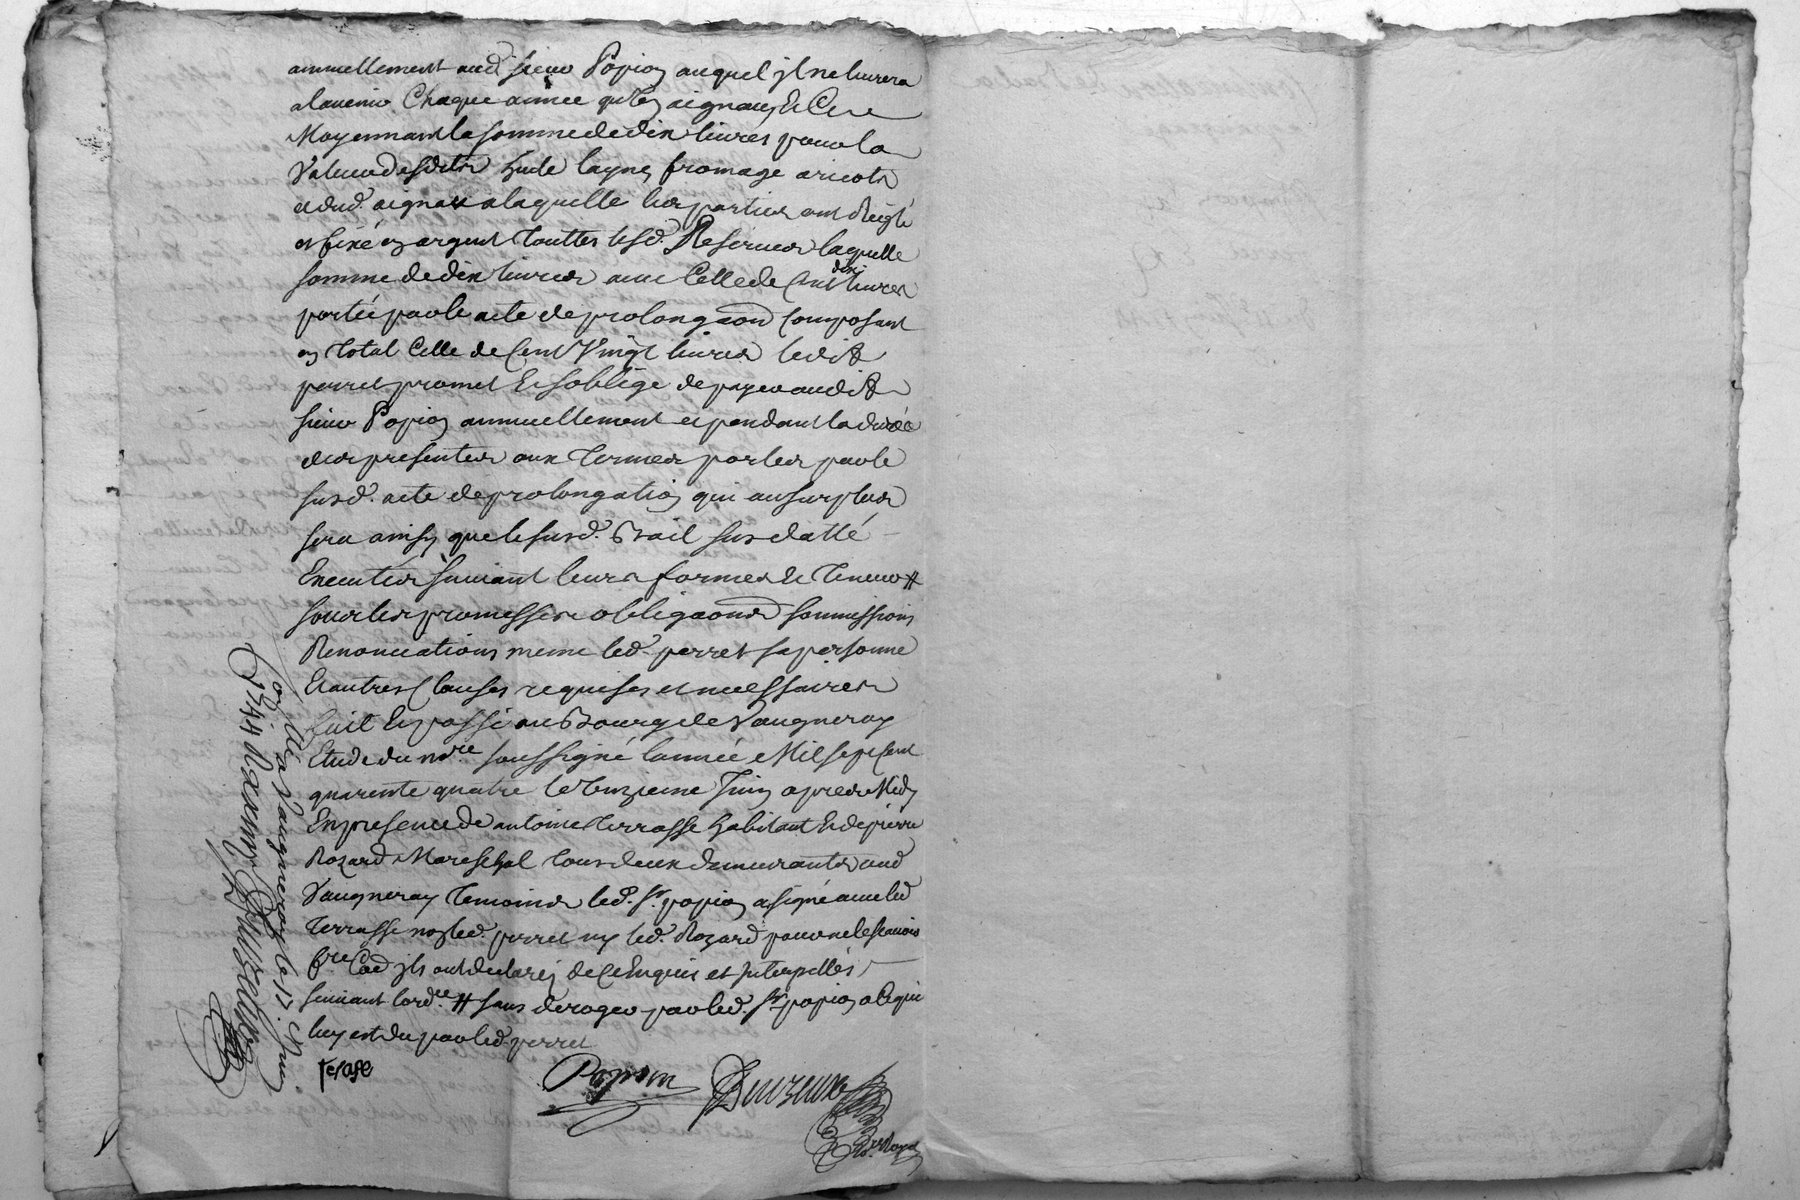 annuellement aud sieur Popion auquel il ne livrera
alavenir Chaque année qu'un aigneau Et Ce
Moyennant la somme de dix livres pour la
Valeur desdits huile layne fromage aricots
et dud. aigneau alaquelle les parties ont Reiglé
et fixé en argent Touttes lesd. Reserves laquelle
somme de dix livres avec Celle de Cent dix livres
portée par le acte de prolongaon Composant
en Total Celle de Cent Vingt livres ledit
perret promet Et soblige de payer audit
sieur Popion annuellement et pendant la durée
des presentes aux Termes portes par le
susd. acte de prolongation qui ausurplus
sera ainsy que le susd. Bail sus datté
Executés suivant leurs formes Et Teneur #
sous les promesses obligaons soumissions
Renonciations meme led. perret sa personne
Et autres Clauses requises et necessaires
fait Et passé au Bourg de Vaugneray
Etude du nore soussigné lannée Mil sept Cent
quarente quatre le Juin apres Midy
En presence de antoine Terrasse habitant Et de pierre
Rozard Mareschal Tous deux demeurants aud
Vaugneray Temoins led. sr. popion a signé avec led
Terrasse non led. perret ny led. Rozard pour ne le scavoir
fre Co͞e ils ont declaréz de Ce Enquis et Interpellés
suivant lordce. # sans deroger par led. sr. popion a Ce qui
luy est du par led. perret
Terase
Popion
Con. lé a Vaugneray le 17. Juin
1744 R